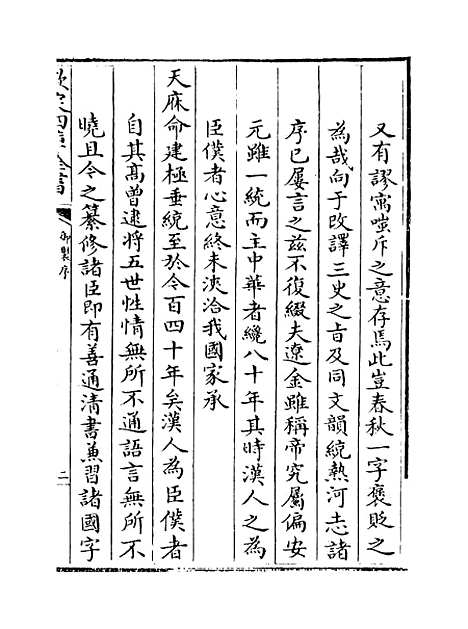 又有謬寓嗤斥之意存焉此豈春秋一字褒貶之
為哉向于改譯三史之旨及同文韻統熱河志諸
序已屢言之茲不復綴夫遼金雖稱帝究屬偏安
元雖一統而主中華者纔八十年其時漢人之為
臣僕者心意終未浹洽我國家承
天庥命建極垂統至於今百四十年矣漢人為臣僕者
自其高曾逮將五世性情無所不通語言無所不
曉且令之纂修諸臣即有善通清書兼習諸國字
欽定四庫全書
御製序
二